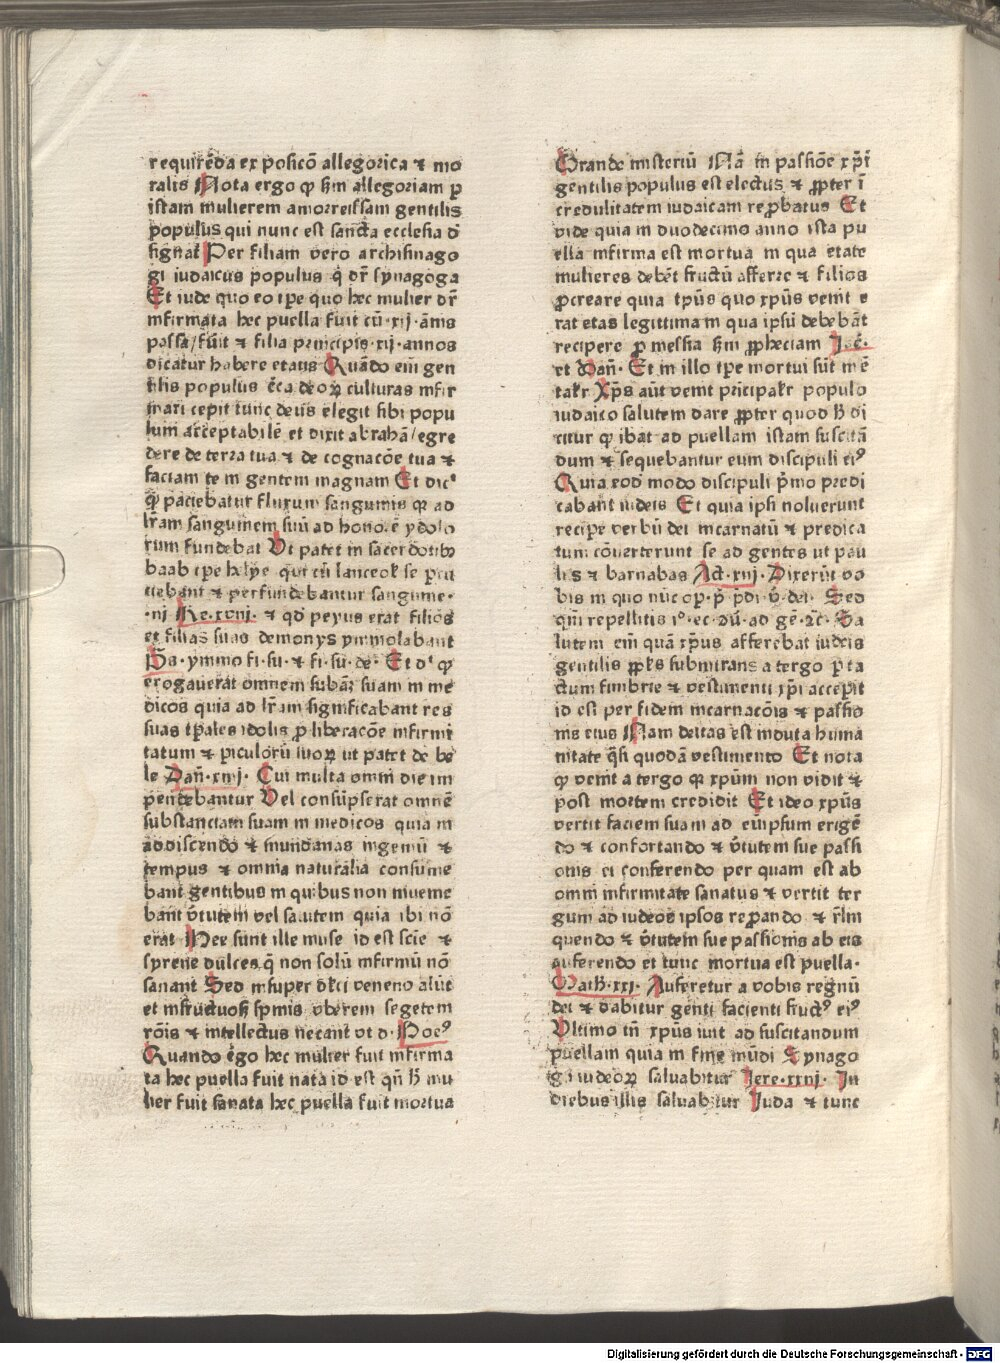 requirēda ex posicō allegorica ⁊ mo
ralis Nota ergo ꝙ ẜm allegoriam ꝑ
istam mulierem amorreissam gentilis
populus qui nunc est sancta ecclesia d̄
signat̄ Per filiam vero archisinago
gi iudaicus populus q̄ dr̄ synagoga
Et iude quo eo tꝑe quo hec mulier dr̄
infirmata hec puella fuit cū·xij·ānis
passa/fūit ⁊ filia principis·xij·annos
dicatur habere etatis Quādo eīm gen
tilis populus ērca deoꝝ culturas infir
mari cepit tunc deus elegit sibi popu
lum acceptabilē et dixit abrahā/egre
dere de terra tua ⁊ de cognacōe tua ⁊
faciam te in gentem magnam Et dic'
ꝙ paciebatur fluxum sanguinis ꝙ ad
lr̄am sanguinem suū ad honorē ydolo
rum fundebat Vt patet in sacerdotibꝫ
baab tꝑe helye qui cū lanceol' se pcu
tiebant ⁊ perfundebantur sanguine·
·iij Re·xviij· ⁊ qd̄ peyus erat filios
et filias suas demonys ymmolabant
Ps·ymmo fi·su·⁊ fi·su·de· Et d' ꝙ
erogauerat omnem subam̄ suam in me
dicos quia ad lr̄am significabant res
suas tp̄ales idolis ꝓ liberacōe infirmi
tatum ⁊ piculorū suoꝝ ut patet de be
le Dan̄·xiiij· Cui multa omni die im
pendebantur Vel consūpserat omnē
substanciam suam in medicos quia in
addiscendo ⁊ mundanas ingeniū ⁊
tempus ⁊ omnia naturalia consume
bant gentibus in quibus non inueme
bant v̄tutem vel salutem quia ibi nō
erat Nec sunt ille muse id est scīe ⁊
syrene dulces q̄ non solū infirmū nō
sanant Sed insuper dlci veneno alūt
et infructuos̄ spinis vberem segetem
rōis ⁊ intellectus necant vt d· Poeꝰ
Quando ēgo hec mulier fuit infirma
ta hec puella fuit nata id est qn̄ h̄ mu
lier fuit sanata hec puella fuit mortua
Grande misteriū Nā in passiōe xp̄i
gentilis populus est electus ⁊ ꝓpter ī
credulitatem iudaicam reꝓbatus Et
vide quia in duodecimo anno ista pu
ella infirma est mortua in qua etate
mulieres debēt fructū afferre ⁊ filios
ꝓcreare quia tp̄us quo xp̄us venit e
rat etas legittima in qua ipsū debebāt
recipere ꝓ messia ẜm ꝓpheciam Jeē·
et Dan̄· Et in illo tꝑe mortui sūt mē
talr̄ Xp̄s aūt venit prīcipalr̄ populo
iudaico salutem dare ꝓpter quod h̄ di
citur ꝙ ibat ad puellam istam suscitā
dum ⁊ sequebantur eum discipuli eiꝰ
Quia eod̄ modo discipuli p̄mo predi
cabant iudeis Et quia ipsi noluerunt
reciꝑe verbū dei incarnatū ⁊ predica
tum cōuerterunt se ad gentes ut pau
lus ⁊ barnabas Act·xiij·Dixerūt vo
bis in quo nūc oꝑ·p̄ pdi·v̄·dei· Sed
qm̄ repellitis i°·ec·ōu·ad gē·⁊c̄· Sa
lutem eīm quā xp̄us afferebat iudeis
gentilis ppl's submitrans a tergo ꝑ ta
ctum fimbrie ⁊ vestimenti xp̄i accepit
id est per fidem incarnacōis ⁊ passio
nis eius Nam deitas est induta huma
nitate q̄si quodā vestimento Et nota
ꝙ venit a tergo ꝙ xp̄um non vidit ⁊
post mortem credidit Et ideo xp̄us
vertit faciem suam ad eūipsum erigē
do ⁊ confortando ⁊ v̄tutem sue passi
onis ei conferendo per quam est ab
omni infirmitate sanatus ⁊ vertit ter
gum ad iudeos ipsos reꝓando ⁊ r̄lin
quendo ⁊ v̄tutem sue passionis ab eis
auferendo et tunc mortua est puella·
Math̄·xxi· Auferetur a vobis regnū
dei ⁊ dabitur genti facienti fructꝰ eiꝰ
Vltimo tn̄ xp̄us iuit ad suscitandum
puellam quia in fine mūdi Synago
gi iudeoꝝ saluabitur Jere·xxiij· In
diebus illis saluabitur Juda ⁊ tunc
Digitalisierung gefördert durch die Deutsche Forschungsgemeinschaft - DFG